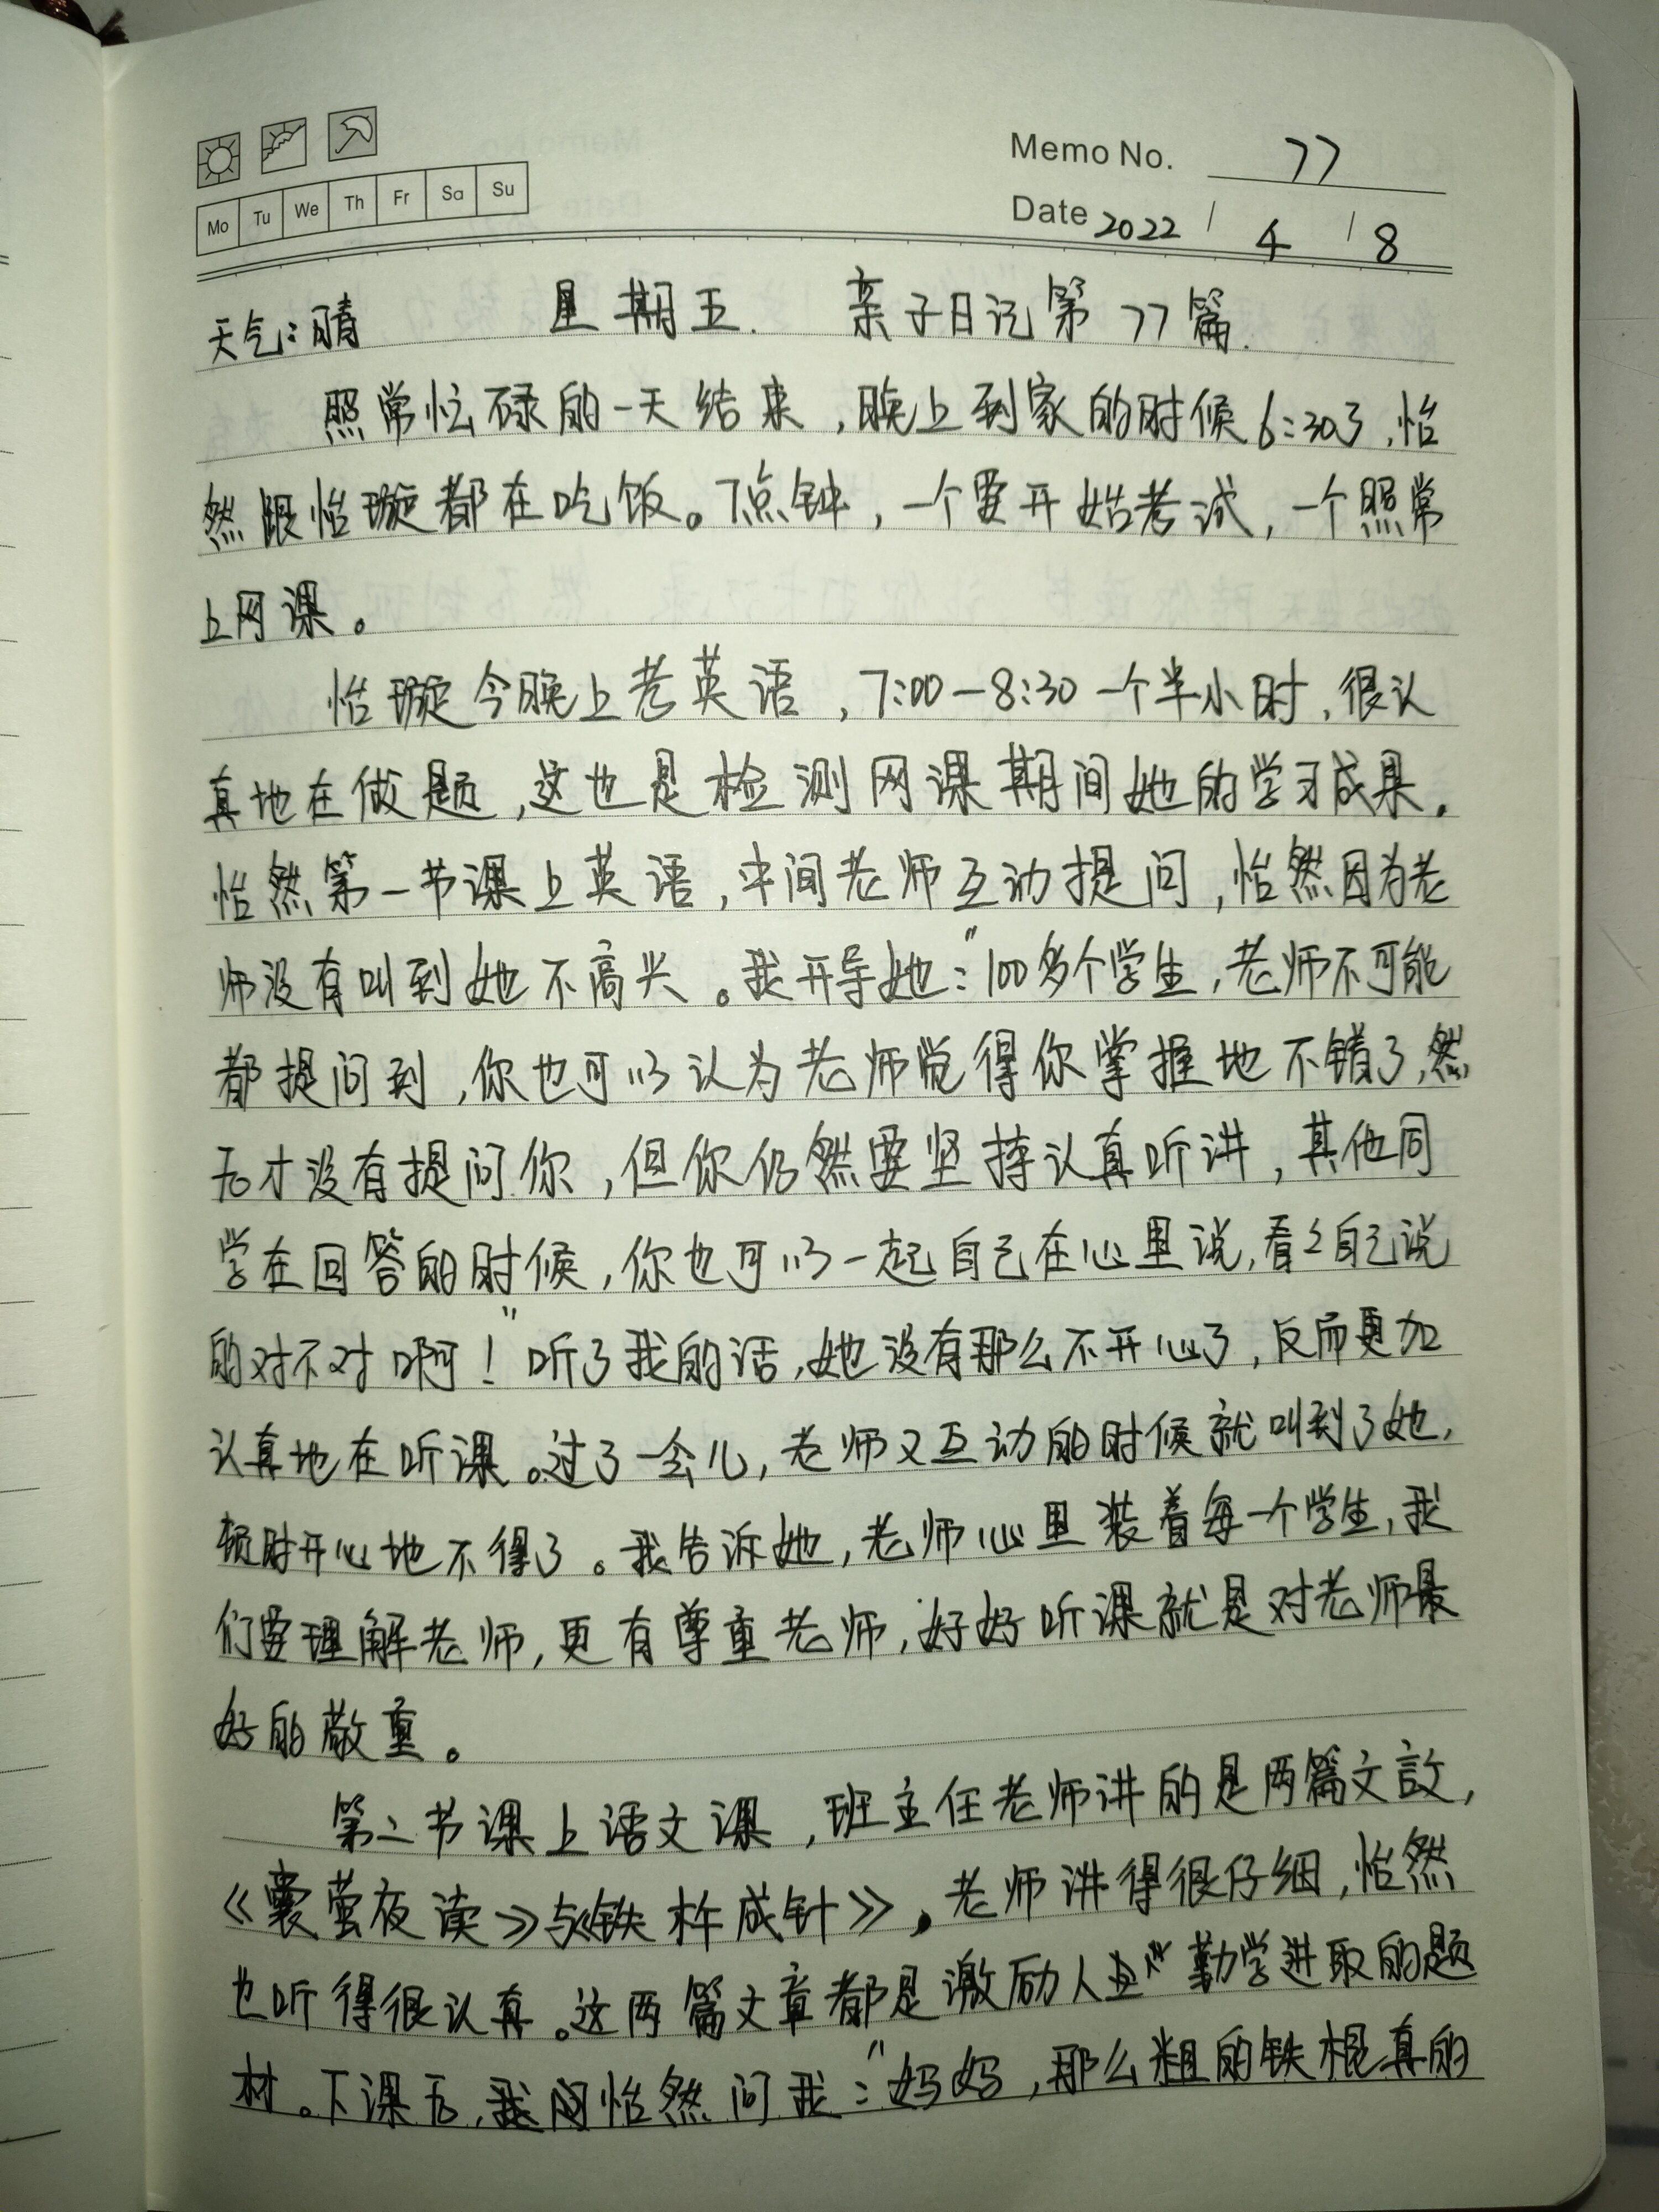 Memo No. 77
Mo Tu We Th Fr Sa Su
Date 2022 / 4 / 8
天气:晴 星期五. 亲子日记第77篇.
照常忙碌的一天结束,晚上到家的时候6:30了,怡
然跟怡璇都在吃饭。7点钟,一个要开始考试,一个照常
上网课。
怡璇今晚上考英语,7:00-8:30一个半小时,很认
真地在做题,这也是检测网课期间她的学习成果。
怡然第一节课上英语,中间老师互动提问,怡然因为老
师没有叫到她不高兴。我开导她:“100多个学生,老师不可能
都提问到,你也可以认为老师觉得你掌握地不错了,然
后才没有提问你,但你仍然要坚持认真听讲,其他同
学在回答的时候,你也可以一起自己在心里说,看々自己说
的对不对啊!”听了我的话,她没有那么不开心了,反而更加
认真地在听课。过了一会儿,老师又互动的时候就叫到了她,
顿时开心地不得了。我告诉她,老师心里装着每一个学生,我
们要理解老师,更有尊重老师,好好听课就是对老师最
好的敬重。
第二节课上语文课,班主任老师讲的是两篇文言文,
《囊萤夜读》与《铁杵成针》,老师讲得很仔细,怡然
也听得很认真。这两篇文章都是激励人 勤学进取的题
材。下课后, 怡然问我:“妈妈,那么粗的铁棍真的